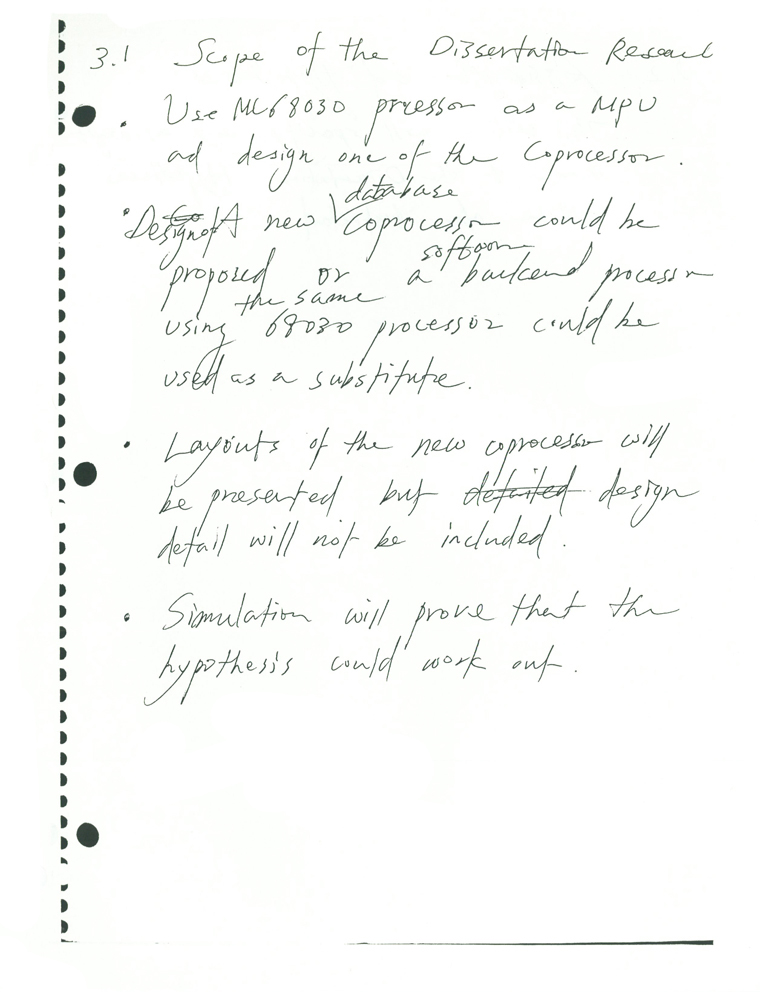 3.1 Scope of the Dissertation Research
• Use MC68030 processor as a MPU
ad design one of the Coprocessor.
database
• Design of A new coprocessor could be
software
proposed or a backend processor
the same
using 68030 processor could be
used as a substitute.
• Layouts of the new coprocessor will
be presented but detailed design
detail will not be included.
• Simulation will prove that the
hypothesis could work out.